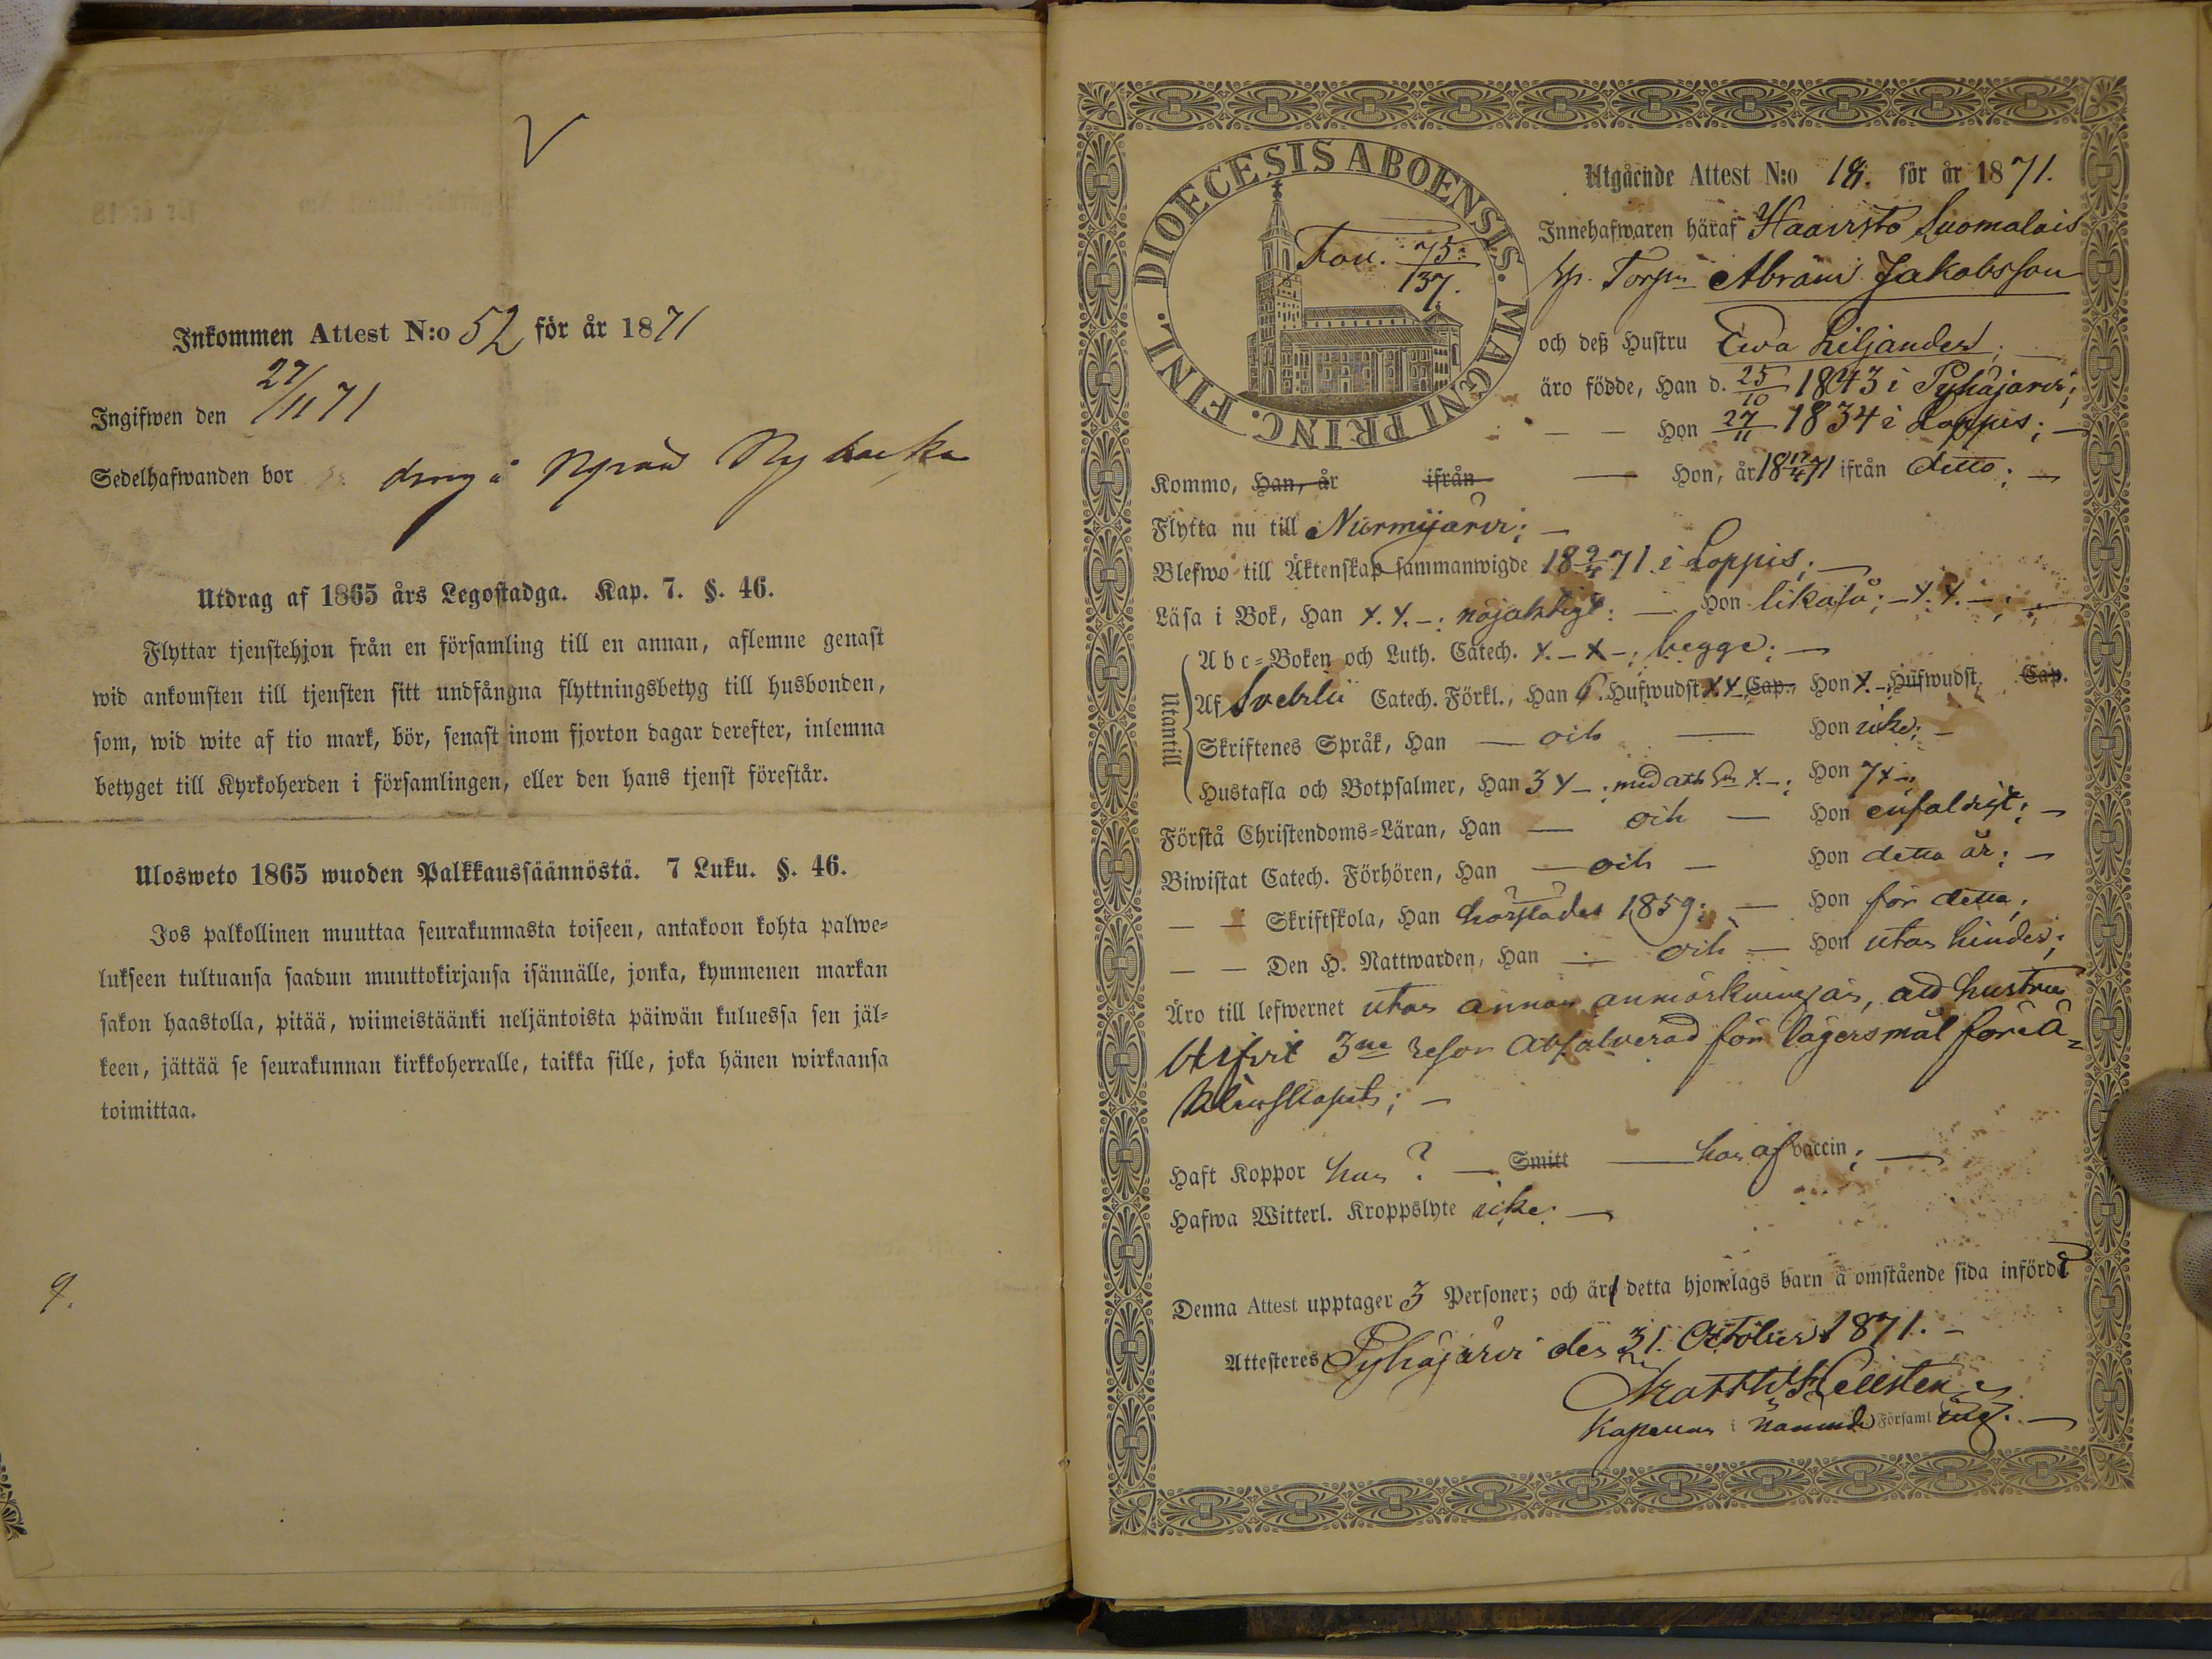 V
Inkommen Attest N:o 52 för år 1871
Ingifwen den 27/11 71
Sedelhafwanden bor dräng å
Utdrag af 1865 års Legostadga. Kap. 7. §. 46.
Flyttar tjenstehjon från en församling till en annan, aflemne genast
wid ankomsten till tjensten sitt undfångna flyttningsbetyg till husbonden,
som, wid wite af tio mark, bör, senast inom fjorton dagar derefter, inlemna
betyget till Kyrkoherden i församlingen, eller den hans tjenst förestår.
Ulosweto 1865 wuoden Palkkaussäännöstä. 7 Luku. §. 46.
Jos palkollinen muuttaa seurakunnasta toiseen, antakoon kohta palwe=
lukseen tultuansa saadun muuttokirjansa isännälle, jonka, kymmenen markan
sakon haastolla, pitää, wiimeistäänki neljäntoista päiwän kuluessa sen jäl=
keen, jättää se seurakunnan kirkkoherralle, taikka sille, joka hänen wirkaansa
toimittaa.
9.
DIOECESIS ABOENSIS. MAGNI PRINC. FINL.
Utgående Attest N:o 18. för år 1871.
Fou. 75/137.
Innehafwaren häraf Haavisto Suomalais
Torpn Abram Jakobsson
och deß Hustru Ewa Liljander;
äro födde, Han d. 25/10 1843 i Pyhäjärvi;
— — Hon 27/11 1834 i Loppis; —
Kommo, Han, år ifrån — Hon, år 18 17/4 71 ifrån ditto; —
Flytta nu till Nurmijärvi; —
Blefwo till Äktenskap sammanwigde 18 9/4 71 i Loppis; —
Läsa i Bok, Han x. x. —: nöjaktigt: — Hon likaså; — x. x. —;
Utantill
Abc=Boken och Luth. Catech. x. — x —; begge; —
Af Svebilii Catech. Förkl., Han 6. Hufwudst. x x Cap., Hon x. — Hufwudst. Cap.
Skriftenes Språk, Han — och — Hon icke; —
Hustafla och Botpsalmer, Han 3 x —; Hon 7 x —;
Förstå Christendoms=Läran, Han — och — Hon enfaldigt; —
Biwistat Catech. Förhören, Han — och — Hon detta år; —
— — Skriftskola, Han 1859; — Hon för detta;
— — Den H. Nattwarden, Han — och — Hon utan hinder;
Äro till lefwernet utan annan anmärkning än, att hustrun
blifvit 3ne resor absolverad för lägersmål före ä=
ktenskapet; —
Haft Koppor han ? — Smitt — hon af vaccin; —
Hafwa Witterl. Kroppslyte icke; —
Denna Attest upptager 3 Personer; och äro detta hjonelags barn å omstående sida införde
Attesteres Pyhäjärvi den 31. October 1871. —
Matth. Hellsten
Kapellan i nämnde Församling. —